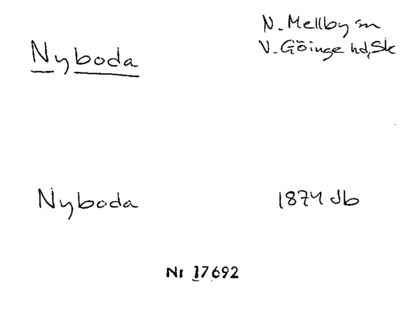 Nyboda
N. Mellby sn
V. Göinge hd, Sk
Nyboda
1874 db
Nr 17692